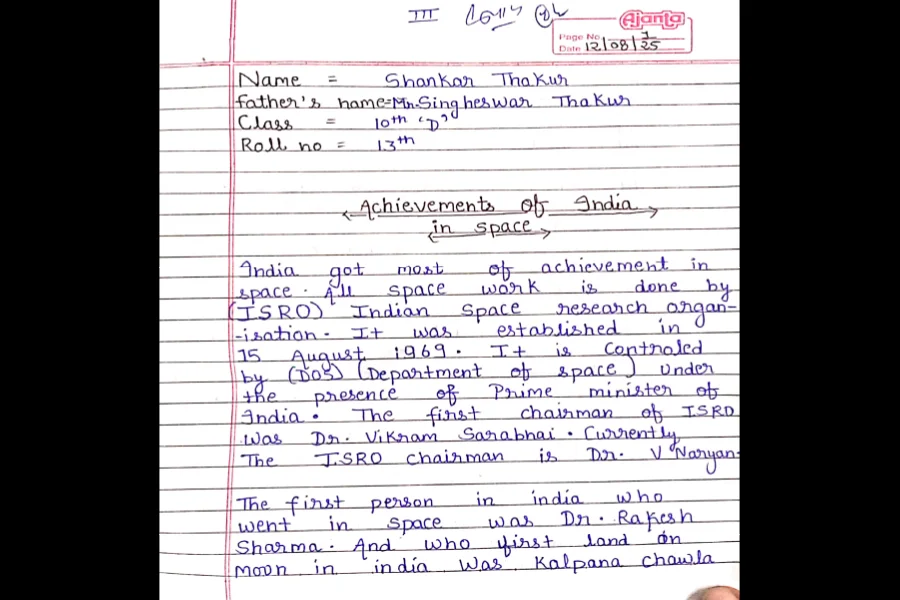 III
Ajanta
Page No. 1
Date 12/08/25
Name = Shankar Thakur
father's name=Mr. Singheswar Thakur
Class = 10th 'D'
Roll no = 13th
Achievements of India
in space
India got most of achievement in
space. All space work is done by
(ISRO) Indian Space research organ-
-isation. It was established in
15 August 1969. It is Controled
by (DOS) (Department of space) Under
the presence of Prime minister of
India. The first chairman of ISRO
was Dr. Vikram Sarabhai. Currently
The ISRO chairman is Dr. V Naryan.
The first person in india who
went in space was Dr. Rakesh
Sharma. And who first land on
moon in india was Kalpana chawla